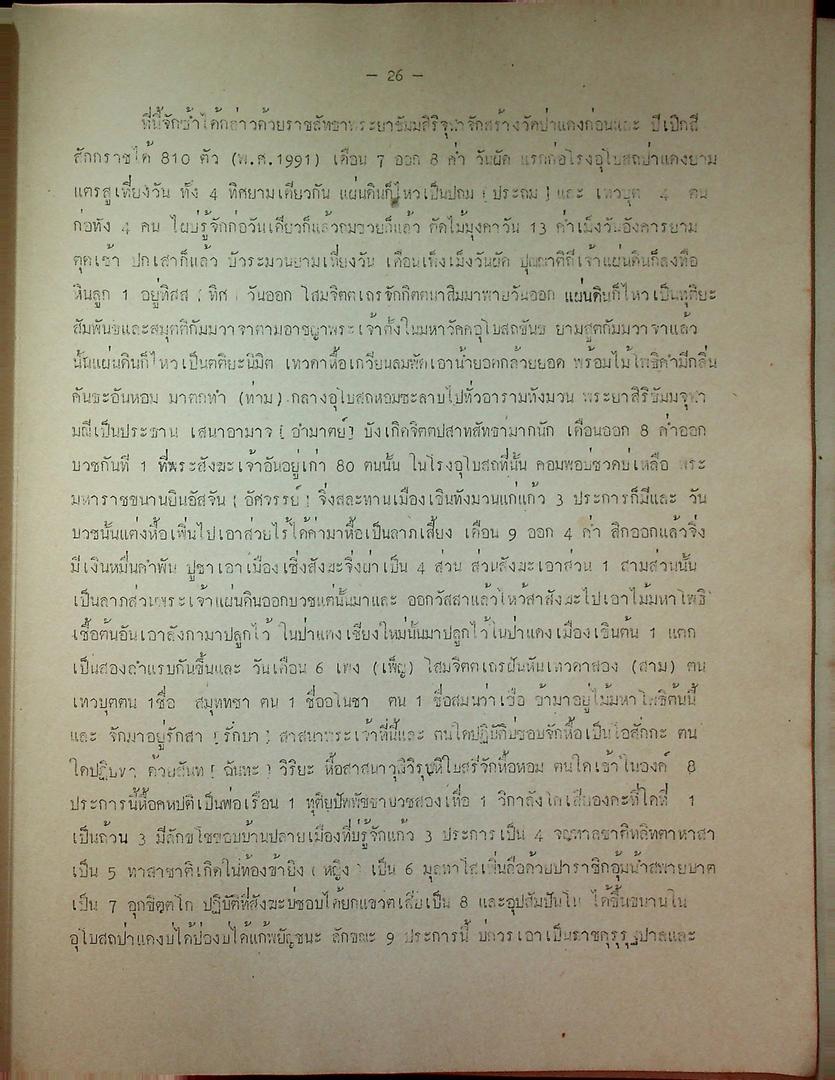 - 26 -
ที่นี้จักซ้ำได้กล่าวด้วยราชสัทธาพระยาธัมมสิริจุฬาจักสร้างวัดป่าแดงก่อนและ ปีเปิกสี
สักกราชได้ 810 ตัว (พ.ศ.1991) เดือน 7 ออก 8 ค่ำ วันผัด แรกก่อโรงอุโบสถป่าแดงยาม
แตรสู่เที่ยงวัน ทั้ง 4 ทิศยามเดียวกัน แผ่นดินก็ไหวเป็นปถม [ประถม] และ เทวบุตร 4 ตน
ก่อทัง 4 คน ไผบ่รู้จักก่อวันเดียวก็แล้วถมรวายก็แล้ว ตัดไม้มุงคาวัน 13 ค่ำเม็งวันอังคารยาม
ตุดเช้า ปกเสาก็แล้ว บัวระมวนยามเที่ยงวัน เดือนเพ็งเม็งวันผัด ปุณณาติถีเจ้าแผ่นดินก็ลงทือ
หินลูก 1 อยู่ทิสส [ทิศ] วันออก โสมจิตตเถรจักกิตตนาสิมมาพายวันออก แผ่นดินก็ไหวเป็นทุติยะ
สัมพันธและสมุตติกัมมวาจาตามอาชญาพระเจ้าตั้งในมหาวัคคอุโบสถขันธ ยามสูตกัมมวาจาแล้ว
นั้นแผ่นดินก็ไหวเป็นตติยะนิมิต เทวดาหื้อเกวียนลมพัดเอาน้ำยอดกล้วยยอด พร้อมไม้โพธิ์คำมีกลิ่น
คันธะอันหอม มาตกทำ (ท่าม) กลางอุโบสถหอมซะลาบไปทั่วอารามทังมวน พระยาสิริธัมมจุฬา
มณีเป็นประธาน เสนาอามาจ [อำมาตย์] บังเกิดจิตตปสาทสัทธามากนัก เดือนออก 8 ค่ำออก
บวชกันที 1 ที่พระสังฆะเจ้าอันอยู่เก่า 80 ตนนั้น ในโรงอุโบสถที่นั้น คอมพอบ่ขาดบ่เหลือ พระ
มหาราชขนานยินอัสจัน [อัศจรรย์] จิ่งสละทานเมืองเชินทังมวนแก่แก้ว 3 ประการก็มีและ วัน
บวชนั้นแต่งหื้อเพิ่นไปเอาส่วยไร่ได้ค่ามาหื้อเป็นลาภเสี้ยง เดือน 9 ออก 4 ค่ำ สิกออกแล้วจิ่ง
มีเงินหมื่นคำพัน ปูชาเอาเมืองเชิ่งสังฆะจิ่งผ่าเป็น 4 ส่วน ส่วนสังฆะเอาส่วน 1 สามส่วนนั้น
เป็นลาภส่วนพระเจ้าแผ่นดินออกบวชแต่นั้นมาและ ออกวัสสาแล้วไหว้สาสังฆะไปเอาไม้มหาโพธิ
เชื้อต้นอันเอาลังกามาปลูกไว้ ในป่าแดงเชียงใหม่นั้นมาปลูกไว้ในป่าแดงเมืองเชินต้น 1 แตก
เป็นสองลำแรบกันขึ้นและ วันเดือน 6 เพง (เพ็ญ) โสมจิตตเถรฝันหันเทวดาสอง (สาม) ตน
เทวบุตตน 1ชื่อ สมุททชา ตน 1 ชื่ออโนชา ตน 1 ชื่อสมนวาเชอ ข้ามาอยู่ไม้มหาโพธิต้นนี้
และ จักมาอยู่รักสา [รักษา] สาสนาพระเจ้าที่นี้และ ตนใดปฏิบัติบ่ชอบจักหื้อเป็นโอสักกะ ตน
ใดปฏิบัติ ด้วยสันท [ฉันทะ] วิริยะ หื้อสาสนาวุฑิวิรุฬหีใบสรีจักหื้อหอม ตนใดเข้าในองค์ 8
ประการนี้หื้อคหปติเป็นพ่อเรือน 1 ทุติยปัพพัชชาบวชสองเทื่อ 1 วิกาลังโกเสียองคะที่ใดที่ 1
เป็นถ้วน 3 มีลักขโขชอบบ้านปลายเมืองที่บ่รู้จักแก้ว 3 ประการเป็น 4 จณฑาลชาติหลิททาหาสา
เป็น 5 ทาสาชาติเกิดในท้องข้ายิง [หญิง] เป็น 6 มุลทาโสเพิ่นถือด้วยปาราชิกอุ้มน้ำสพายบาต
เป็น 7 อุกขิตฺตโก ปฏิบัติที่สังฆะบ่ชอบได้ยกแขวดเสียเป็น 8 และอุปสัมปันโน ได้ขึ้นขนานใน
อุโบสถป่าแดงบ่ได้ป่องบ่ได้แก้พยัญชนะ ลักขณะ 9 ประการนี้ บ่ควรเอาเป็นราชคุรุรฐปาลและ